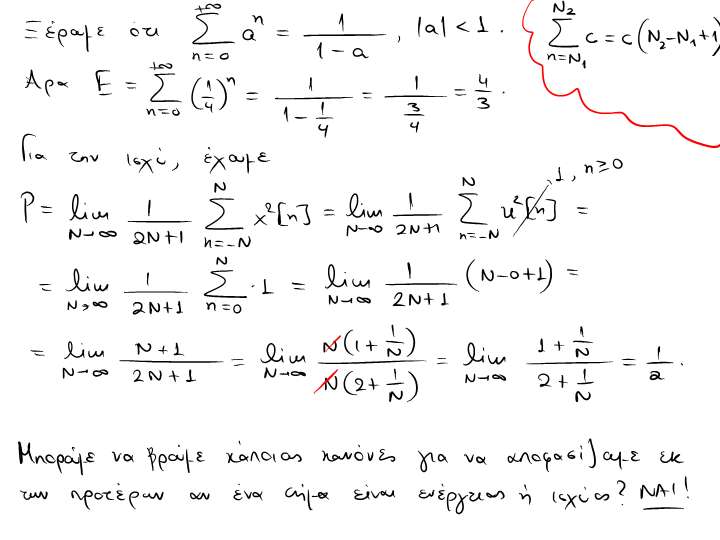 Ξέραμε ότι \sum_{n=0}^{+\infty} a^n = \frac{1}{1-a}, |a| < 1. \sum_{n=N_1}^{N_2} c = c(N_2-N_1+1)
Άρα E = \sum_{n=0}^{+\infty} (\frac{1}{4})^n = \frac{1}{1-\frac{1}{4}} = \frac{1}{\frac{3}{4}} = \frac{4}{3}.
Για την ισχύ, έχουμε
P = \lim_{N→∞} \frac{1}{2N+1} \sum_{n=-N}^{N} x^2[n] = \lim_{N→∞} \frac{1}{2N+1} \sum_{n=-N}^{N} u^2[n] 1, n≥0 =
= \lim_{N→∞} \frac{1}{2N+1} \sum_{n=0}^{N} · 1 = \lim_{N→∞} \frac{1}{2N+1} (N-0+1) =
= \lim_{N→∞} \frac{N+1}{2N+1} = \lim_{N→∞} \frac{N(1+\frac{1}{N})}{N(2+\frac{1}{N})} = \lim_{N→∞} \frac{1+\frac{1}{N}}{2+\frac{1}{N}} = \frac{1}{2}.
Μπορούμε να βρούμε κάποιους κανόνες για να αποφασίζουμε εκ
των προτέρων αν ένα σήμα είναι ενέργειας ή ισχύος? ΝΑΙ!